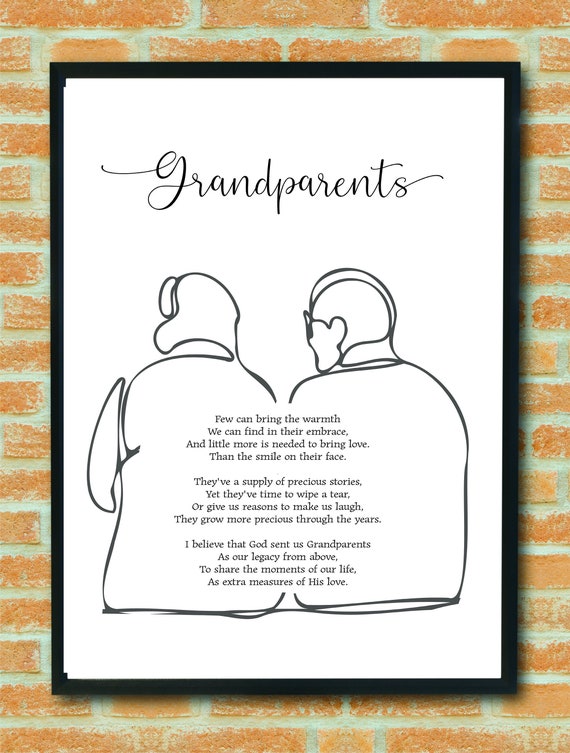 Grandparents
Few can bring the warmth
We can find in their embrace,
And little more is needed to bring love.
Than the smile on their face.
They've a supply of precious stories,
Yet they've time to wipe a tear,
Or give us reasons to make us laugh,
They grow more precious through the years.
I believe that God sent us Grandparents
As our legacy from above,
To share the moments of our life,
As extra measures of His love.